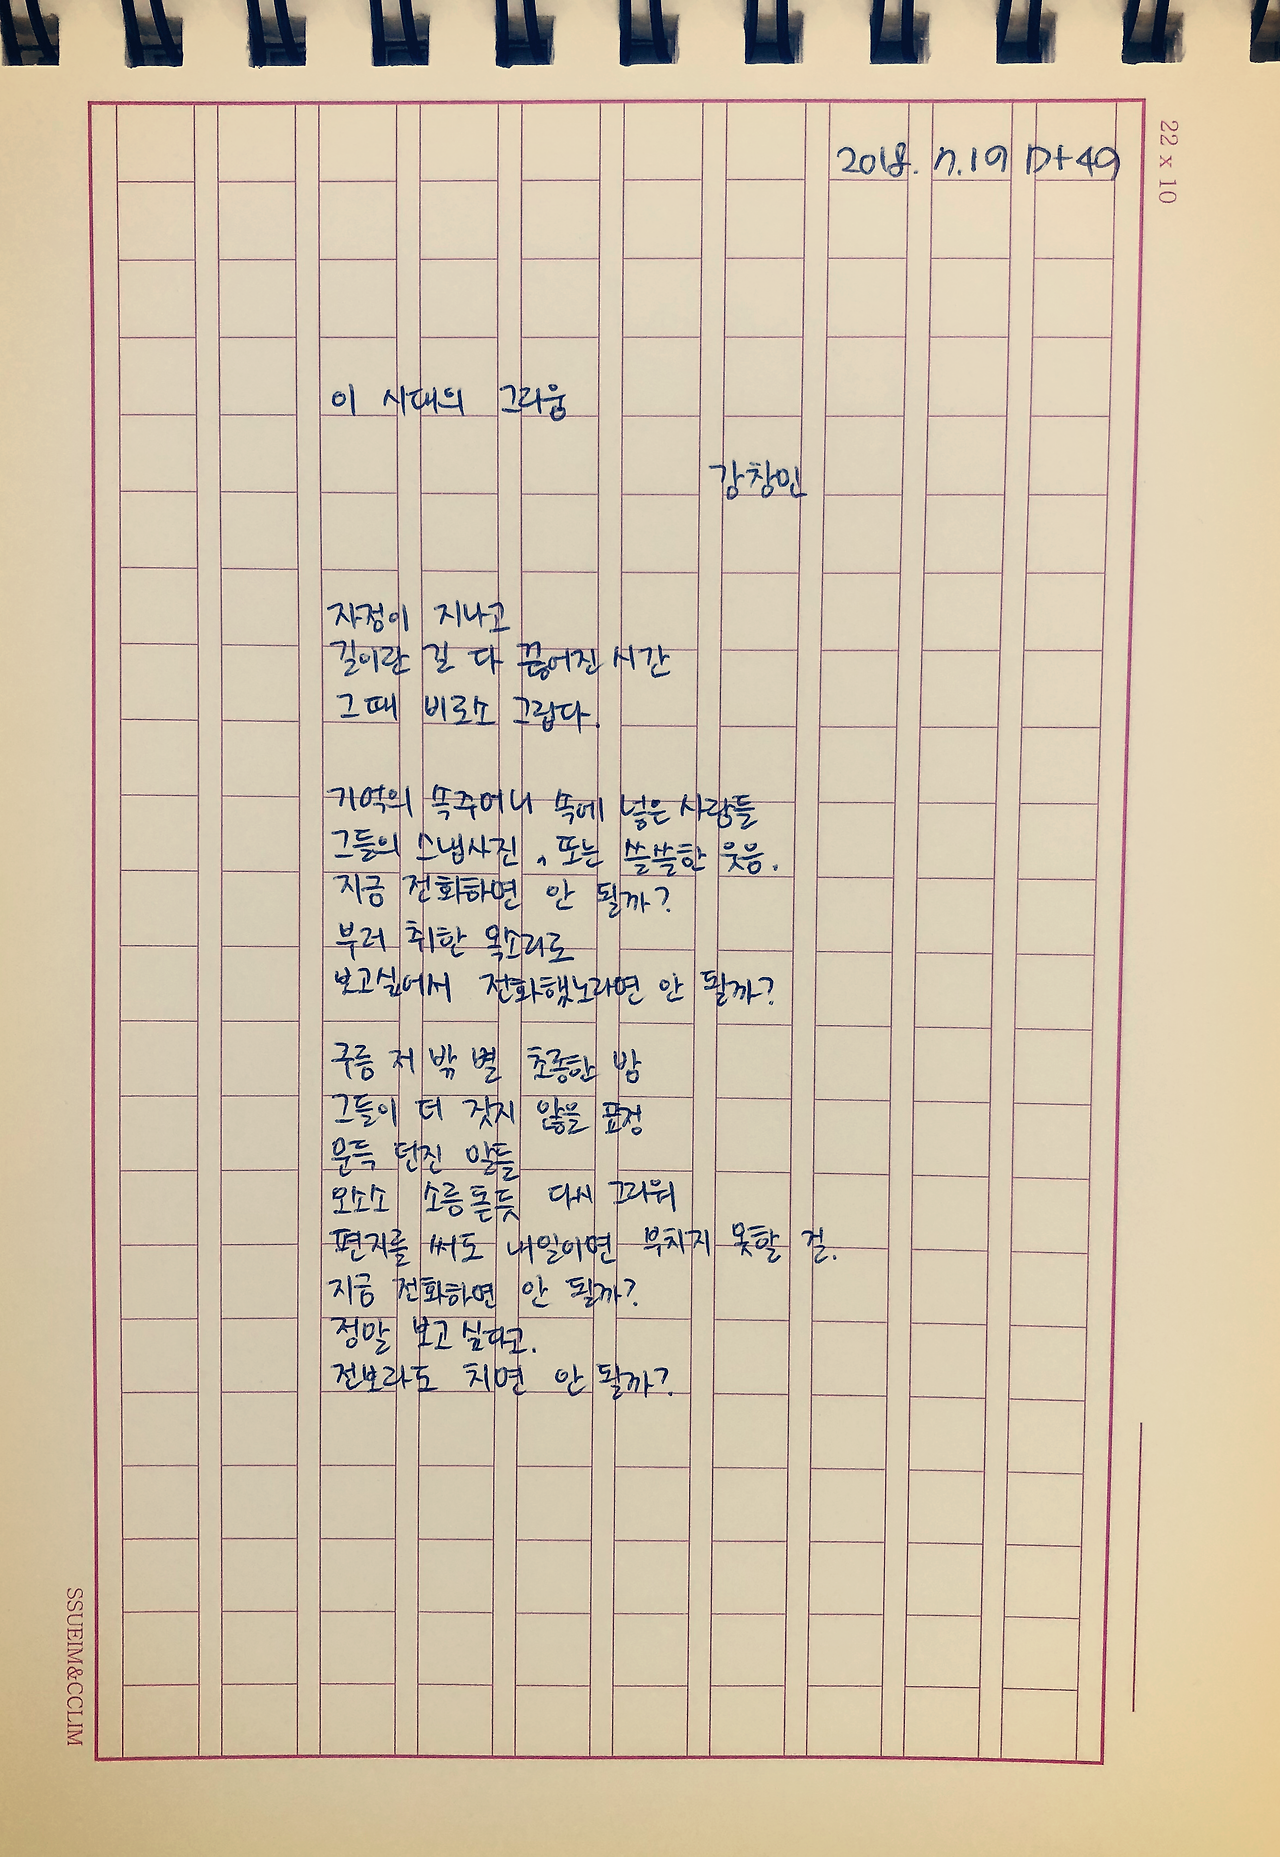 22 x 10
2018. 7. 19 D+49
이 시대의 그리움
강창민
자정이 지나고
길이란 길 다 끊어진 시간
그때 비로소 그립다.
기억의 속주머니 속에 넣은 사람들
그들의 스냅사진, 또는 쓸쓸한 웃음.
지금 전화하면 안 될까?
부러 취한 목소리로
보고싶어서 전화했노라면 안 될까?
구름 저 밖 별 초롱한 밤
그들이 더 잦지 않을 표정
문득 던진 말들
오소소 소름 돋듯 다시 그리워
편지를 써도 내일이면 부치지 못할 걸.
지금 전화하면 안 될까?
정말 보고 싶다고.
전보라도 치면 안 될까?
SSUEIM&CCLIM